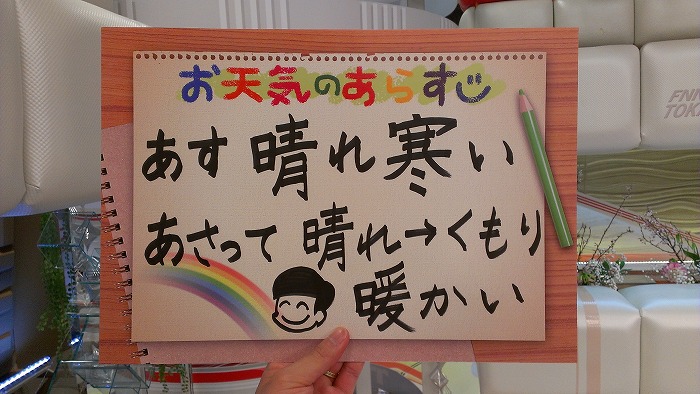 お天気のあらすじ
あす 晴れ 寒い
あさって 晴れ→くもり
暖かい
FNN
TOK